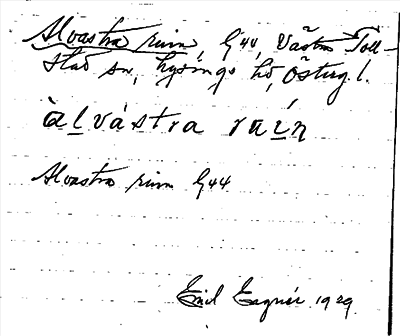 Alvastra ruin, G44, Västra Toll-
stad sn, Lysings hd, Östergl.
àlvástra ruín
Alvastra ruin G44
Emil Eagnér 1929